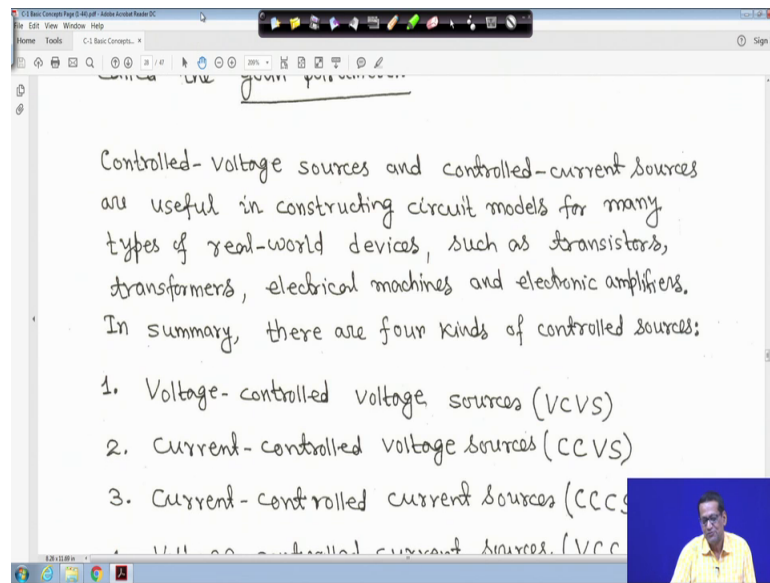 C-1 Basic Concepts Page (1-44).pdf - Adobe Acrobat Reader DC
File Edit View Window Help
Home Tools C-1 Basic Concepts... × Sign
28 / 47 200%
called the gain parameter
Controlled-voltage sources and controlled-current sources
are useful in constructing circuit models for many
types of real-world devices, such as transistors,
transformers, electrical machines and electronic amplifiers.
In summary, there are four kinds of controlled sources:
1. Voltage-controlled voltage sources (VCVS)
2. Current-controlled voltage sources (CCVS)
3. Current-controlled current sources (CCCS
controlled current sources. (VCC
8.26 x 11.69 in